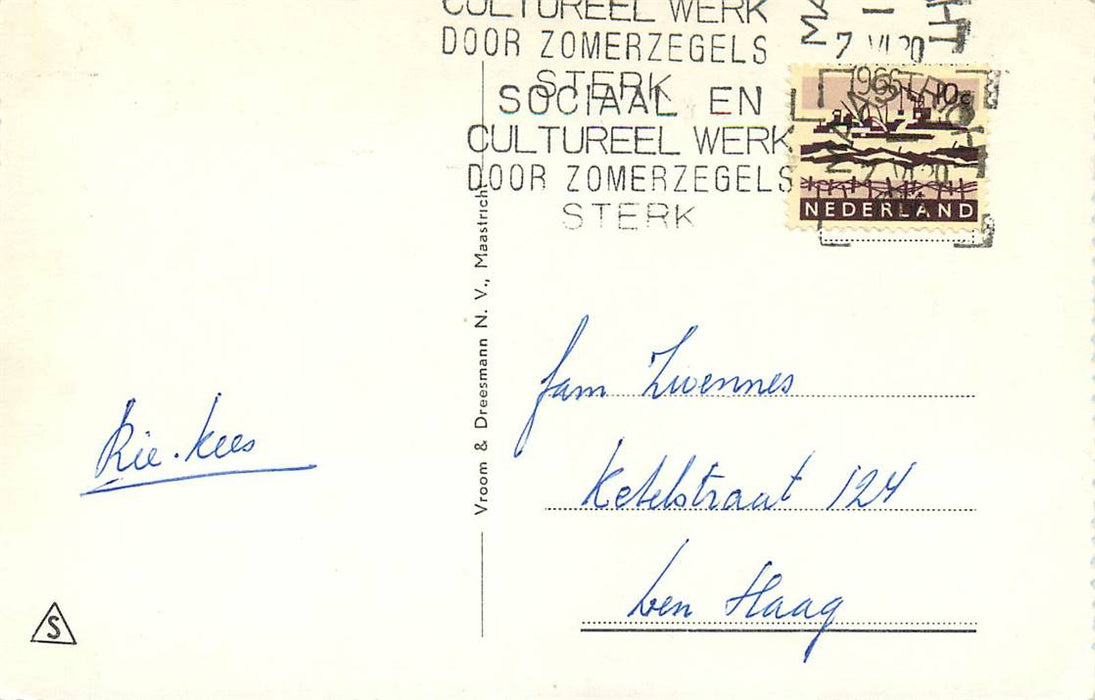 CULTUREEL WERK
DOOR ZOMERZEGELS
STERK
SOCIAAL EN
CULTUREEL WERK
DOOR ZOMERZEGELS
STERK
7 VI 20
1966
10c
NEDERLAND
Vroom & Dreesmann N. V., Maastricht
Rie. Kees
fam Zwennes
Ketelstraat 124
Den Haag
S